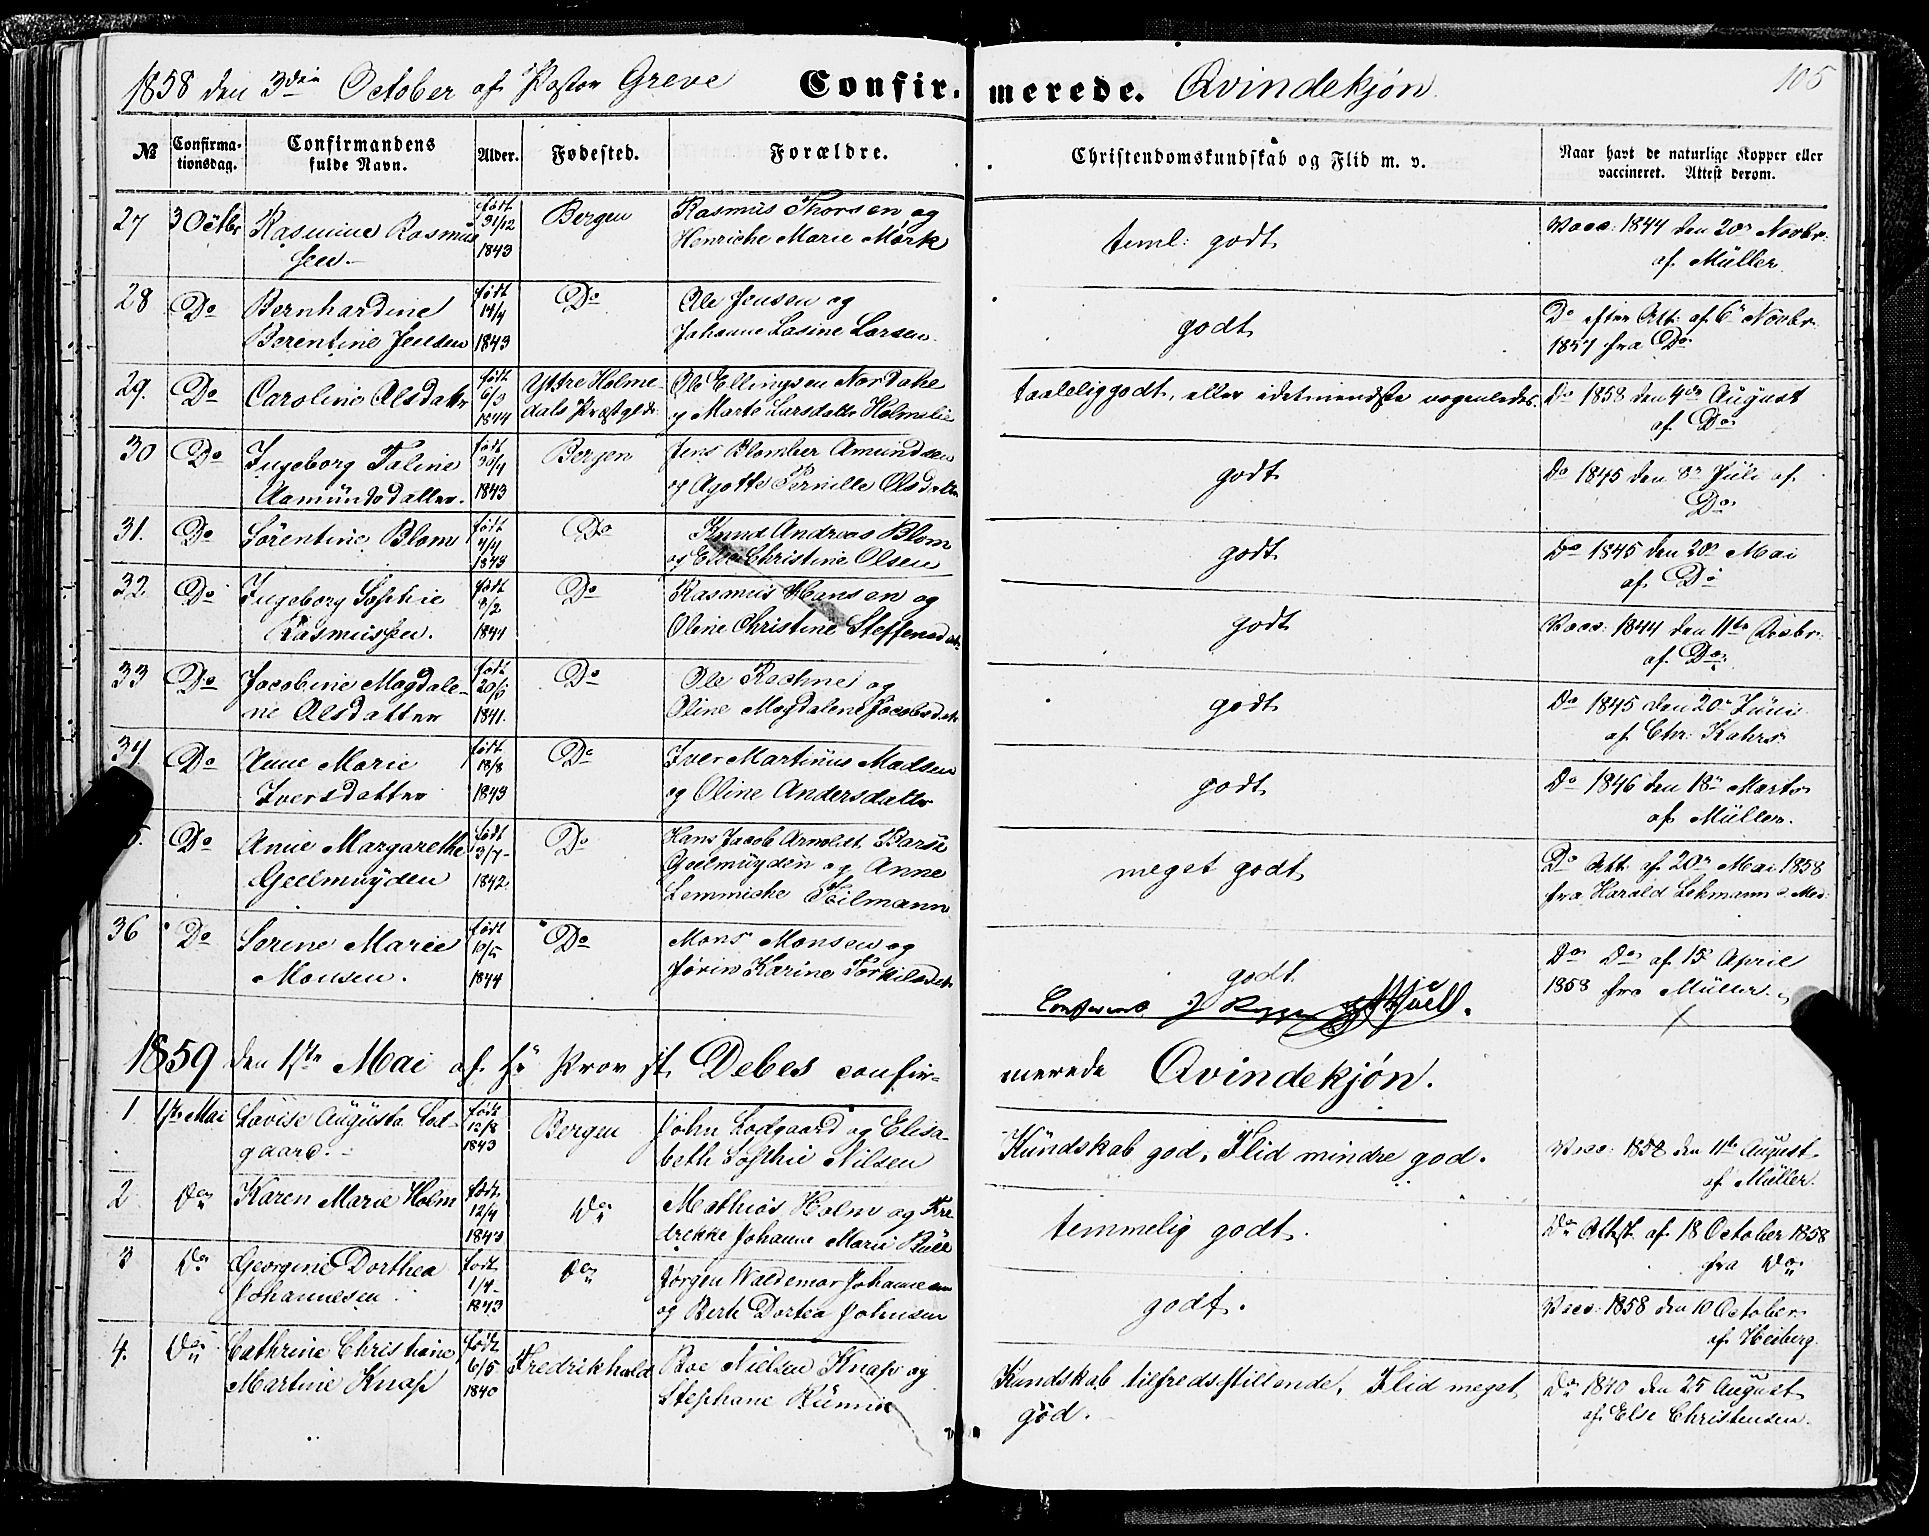 1858 den 3die October af Pastor Greve Confir- merede. Qvindekjøn 105
№ Confirma- Confirmandens Alder. Fødested. Forældre. Christendomskundskab og Flid m. v. Naar havt de naturlige Kopper eller
tionsdag. fulde Navn. vaccineret. Attest derom.
27 3 Octbr Rasmine Rasmus- født 31/12 Bergen Rasmus Thorsen og teml: godt Vacc: 1844 den 20de Novbr:
sen 1843 Henriche Marie Mørk af Müller.
28 Do Bernhardine født 14/4 Do Ole Jensen og godt Do efter Att: af 6te Novbr
Berentine Jensen 1843 Johanne Lasine Larsen 1857 fra Do
29. Do Caroline Olsdatr født 6/3 Yttre Holme- Ole Ellingsen Nordahe taalelig godt, eller idetmindste nogenledes. Do 1858 den 4de August
1844 dals Præstgld. og Marte Larsdatter Holmelie af Do
30 Do Ingeborg Taline født 30/4 Bergen Jens Blomber Amundsen godt Do 1845 den 8de Juli af
Aamundsdatter. 1843 og Agotte Pernille Olsdatter Do
31. Do Sørentine Blom født 4/4 Do Knud Andreas Blom godt Do 1845 den 30te Mai
1843 og Else Christine Olsen af Do
32 Do Ingeborg Sophie født 8/2 Do Rasmus Hansen og godt Vacc: 1844 den 11te Decbr:
Rasmussen. 1844 Oline Christine Steffensdatr. af Do
33 Do Jacobine Magdale- født 20/6 Do Ole Rachne og godt Do 1845 den 20de Juni
ne Olsdatter 1841. Oline Magdalene Jacobsdatr af Chr: Kahrs.
34 Do Anne Marie født 18/8 Do Iver Martinus Madsen godt Do 1846 den 18de Marts
Iversdatter 1843 og Oline Andersdatter af Müller.
5. Do Anne Margarethe født 3/7 Do Hans Jacob Arnoldt Barse meget godt Do Att. af 20de Mai 1858
Geelmuyden 1842 Geelmuyden og Anne fra Harald Lehmann
Lemmiche Heilmann
36 Do Sørine Marie født 10/5 Do Mons Monsen og godt Do Do af 15 April
Monsen. 1844 Jørin Karine Torkilsdatr 1858 fra Müller.
1859 den 1ste Mai af Hr Provst Debes confir- merede Qvindekjøn.
1. 1ste Mai Lovise Augusta Lod- født 12/8 Bergen John Lodgaard og Elisa- Kundskab god, Flid mindre god. Vacc: 1858 den 11te August
gaard. 1843 beth Sophie Nilsen af Müller.
2 Do Karen Marie Holm født 12/4 Do Mathias Holm og Fre- temmelig godt. Do Attest af 18 October 1858
1843 drekke Johanne Marie Buce fra Do
3 Do Georgine Dorthea født 1/4 Do Jørgen Waldemar Johannesen godt. Vacc: 1858 den 10 October
Johannesen 1843 og Berte Dortea Johnsen af Heiberg.
4. Do Cathrine Christiane født 6/5 Fredrikhald Boe Nielsen Knap og Kundskab tilfredsstillende, Flid meget Do 1840 den 25 August
Martine Knap 1840 Stephane god. af Else Christensen.